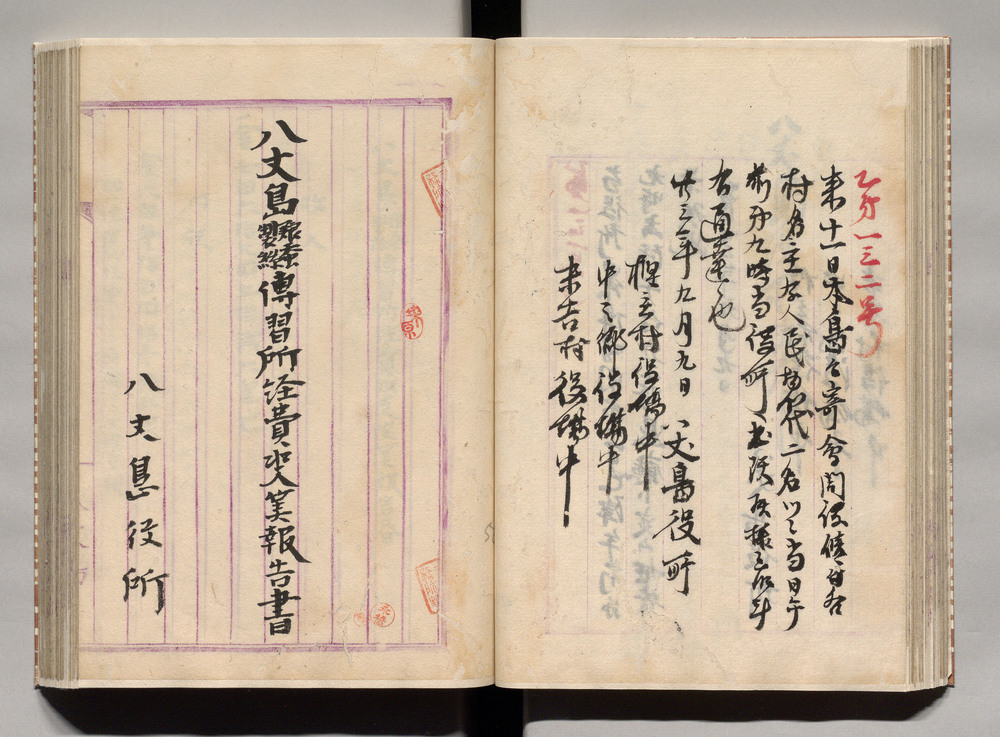 乙第一三二号
来十一日本島召寄會開設候ニ付各
村名主及人民惣代二名ツヽ当日午
前第九時当役所ヘ出頭
右通達也
廿三年九月九日 八丈島役所
樫立村役場中
中之郷役場中
末吉村役場中
八丈島養蚕製絲傳習所経費決算報告書
八丈島役所